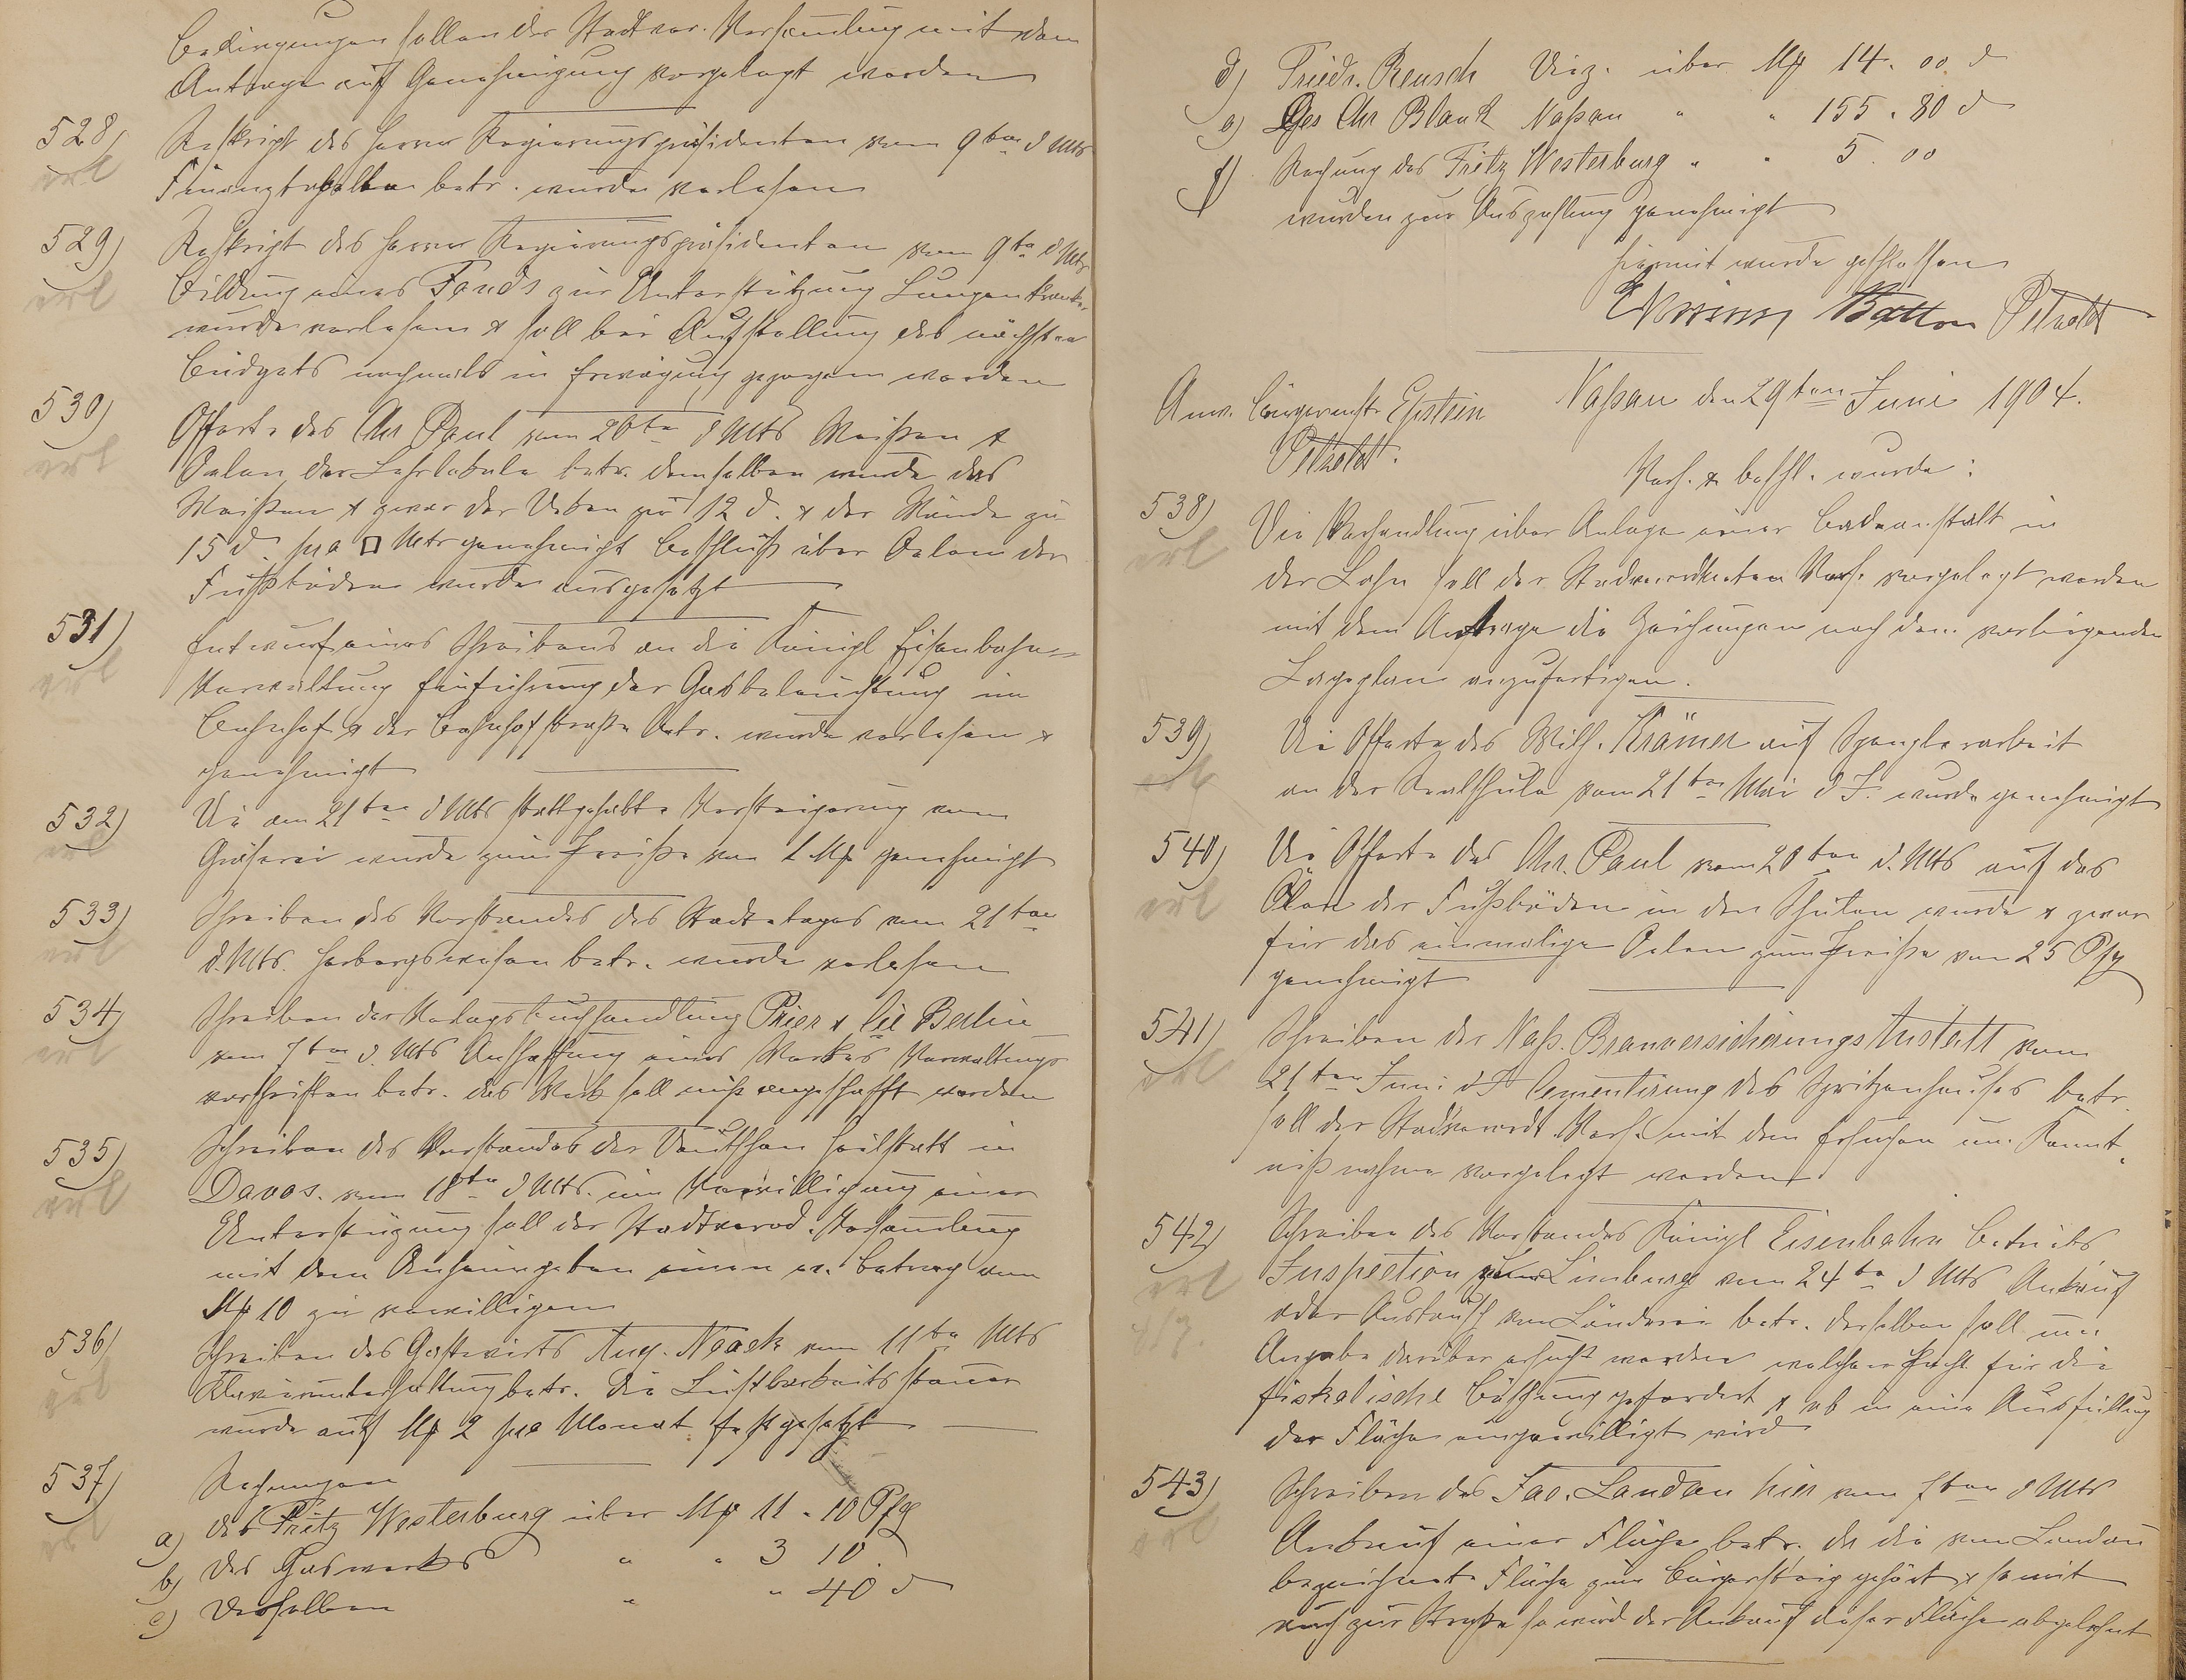 Bedingungen sollen der Stadtver. Versamlung mit dem
Antrage auf Genehmigung vorgelegt werden
528) Reskript des Herren Regierungspräsidenten vom 9ten d Mts
betr. wurde verlesen
529) Reskript des Herren Regierungspräsidenten vom 9ten d Mts
Bildung eines Fonds zur Unterstützung Lungenkranker
wurde verlesen & soll bei Aufstellung des nächsten
Budgets nochmals in Erwägung gezogen werden
530) Offerte des Chr Paul vom 20ten d Mts Weißen &
Oelen der Lehrlokale betr. demselben wurde das
Weißen & zwar der Decken zu 12 d. & der Wände zu
15 d. pro □ Mtr genehmigt Beschluß über Oelen der
Fußböden wurde ausgesetzt
531) Entwurf eines Schreibens an die Königl Eisenbahn=
Verwaltung Einführung der Gasbeleuchtung im
Bahnhof & der Bahnhofstraße betr. wurde verlesen &
genehmigt
532) Die am 21ten d Mts stattgehabte Versteigerung von
Gräserei wurde zum Preiße von 1 Mk genehmigt
533) Schreiben des Vorstandes des Stadtetages vom 21ten
d. Mts. Herbergswesen betr. wurde verlesen
534) Schreiben der Verlagsbuchhandlung Prier & Cie Berlin
vom 7ten d. Mts Anschaffung eines Werkes Verwaltungs
vorschriften betr. das Werk soll nicht angeschafft werden
535) Schreiben des Vorstandes der Deutschen Heilstätt in
Davos. vom 18ten d Mts. um Verwilligung einer
Unterstüzung soll der Stadtverord. Versamlung
mit dem Anheimgeben einen Betrag von
Mk 10 zu verwilligen
536) Schreiben des Gastwirts Aug. Noack vom 11ten Mts
Klavierunterhaltung betr. Die Lustbarkeitssteuer
wurde auf Mk 2 pro Monat festgesetzt
537) Rechnungen
a) des Fritz Westerburg über Mk 11. 10 Pfg
b) des Gaswerkes " " 3 10.
c) desselben " " 40 d
d) Friedr. Reusch Diez. über Mk 14. 00 d
e) Ges Chr Blank Naßau " " 155. 80 d
f) Rechnung des Fritz Westerburg " " 5. 00
wurden zur Auszahlung genehmigt
Hiermit wurde geschlossen
Batton Petzoldt
Naßau den 29ten Juni 1904.
Anw. Bürgermstr Epstein
Petzoldt.
Verh. & beschl. wurde:
538) Die Verhandlung über Anlage einer Badeanstalt in
der Lahn soll der Stadtverordneten Vers. vorgelegt werden
mit dem Antrage die Zeichnungen nach dem vorliegenden
Lageplan anzufertigen.
539) Die Offerte des Wilh. Krämer auf Spenglerarbeit
an der Realschule vom 21ten Mai d J. wurde genehmigt
540) Die Offerte des Chr. Paul vom 20ten d. Mts auf das
Ölen der Fußböden in den Schulen wurde & zwar
für das einmalige Oelen zum Preiße von 25 Pfg
genehmigt
541) Schreiben der Naß. Branversicherungs Anstalt vom
21ten Juni d J Cementirung des Spritzenhauses betr.
soll der Stadtverordt. Vers. mit dem Ersuchen um Kennt=
nißnahme vorgelegt werden.
542) Schreiben des Vorstandes Königl Eisenbahn Betriebs
Inspection Limburg vom 24ten d Mts Ankauf
oder Austausch von Länderei betr. derselben soll um
Angabe darüber ersucht werden welcher Pacht für die
fiskalische Böschung gefordert & ob in eine Ausfüllung
der Fläche eingewilligt wird
543) Schreiben des Jac. Landau hier vom 7ten d Mts
Ankauf einer Fläche betr. da die von Landau
bezeichnete Fläche zum Bürgersteig gehört & somit
auch zur Straße so wird der Ankauf dieser Fläche abgelehnt